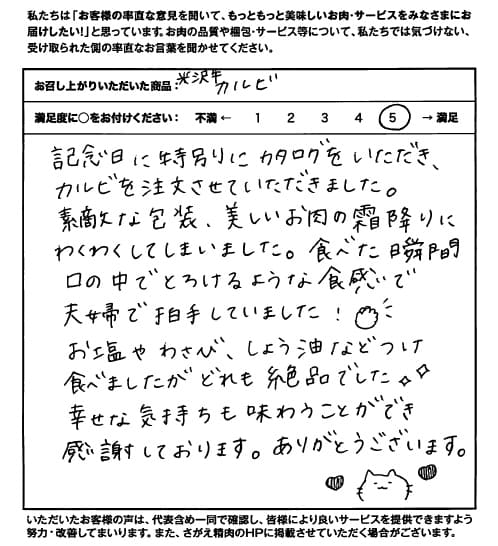 私たちは「お客様の率直な意見を聞いて、もっともっと美味しいお肉・サービスをみなさまにお
届けしたい!」と思っています。お肉の品質や梱包・サービス等について、私たちでは気づけない、
受け取られた側の率直なお言葉を聞かせてください。
お召し上がりいただいた商品:米沢牛カルビ
満足度に○をお付けください: 不満 ← 1 2 3 4 5 → 満足
記念日に特別にカタログをいただき、
カルビを注文させていただきました。
素敵な包装、美しいお肉の霜降りに
わくわくしてしまいました。食べた瞬間
口の中でとろけるような食感で
夫婦で拍手していました!
お塩やわさび、しょう油などつけ
食べましたがどれも絶品でした
幸せな気持ちも味わうことができ
感謝しております。ありがとうございます。
いただいたお客様の声は、代表含め一同で確認し、皆様により良いサービスを提供できますよう
努力・改善してまいります。また、さがえ精肉のHPに掲載させていただく場合がございます。